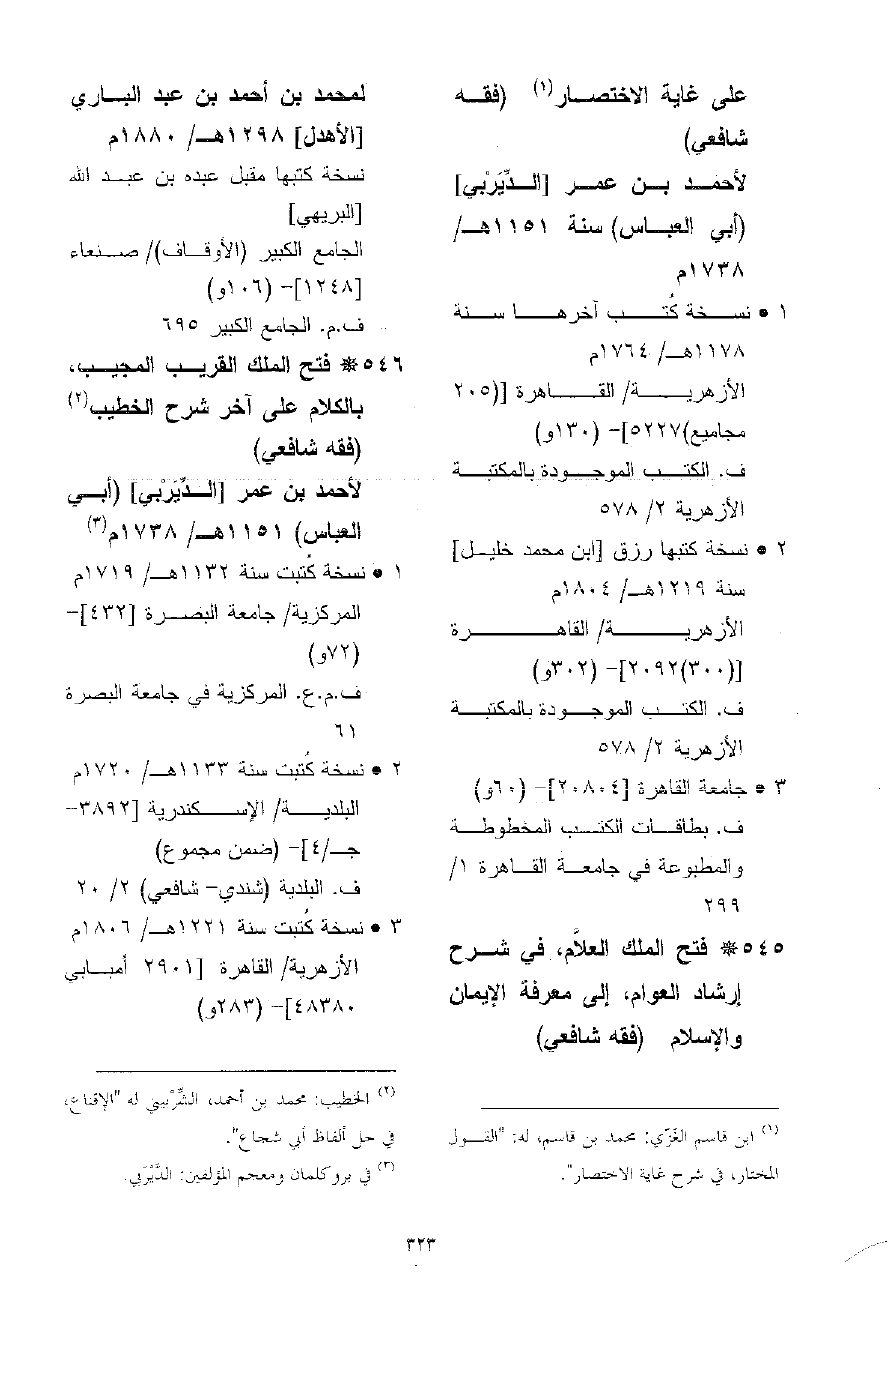 على غاية الاختصار(١) (فقه
شافعي)
لأحمد بن عمر [الدِّيَرْبي]
(أبي العباس) سنة ١١٥١هـ/
١٧٣٨م
١ • نسخة كُتب آخرها سنة
١١٧٨هـ/ ١٧٦٤م
الأزهرية/ القاهرة [(٢٠٥
مجاميع)٥٢٢٧]- (١٣٠و)
ف. الكتب الموجودة بالمكتبة
الأزهرية ٢/ ٥٧٨
٢ • نسخة كتبها رزق [ابن محمد خليل]
سنة ١٢١٩هـ/ ١٨٠٤م
الأزهرية/ القاهرة
[(٣٠٠)٢٠٩٢]- (٣٠٢و)
ف. الكتب الموجودة بالمكتبة
الأزهرية ٢/ ٥٧٨
٣ • جامعة القاهرة [٢٠٨٠٤]- (٦٠و)
ف. بطاقات الكتب المخطوطة
والمطبوعة في جامعة القاهرة ١/
٢٩٩
٥٤٥ ❋ فتح الملك العلاَّم، في شرح
إرشاد العوام، إلى معرفة الإيمان
والإسلام (فقه شافعي)
(١) ابن قاسم الغَزّي: محمد بن قاسم، له: "القول
المختار، في شرح غاية الاختصار".
لمحمد بن أحمد بن عبد الباري
[الأهدل] ١٢٩٨هـ/ ١٨٨٠م
نسخة كتبها مقبل عبده بن عبد الله
[البريهي]
الجامع الكبير (الأوقاف)/ صنعاء
[١٢٤٨]- (١٠٦و)
ف.م. الجامع الكبير ٦٩٥
٥٤٦ ❋ فتح الملك القريب المجيب،
بالكلام على آخر شرح الخطيب(٢)
(فقه شافعي)
لأحمد بن عمر [الدِّيَرْبي] (أبي
العباس) ١١٥١هـ/ ١٧٣٨م(٣)
١ • نسخة كُتبت سنة ١١٣٢هـ/ ١٧١٩م
المركزية/ جامعة البصرة [٤٣٢]-
(٧٢و)
ف.م.ع. المركزية في جامعة البصرة
٦١
٢ • نسخة كُتبت سنة ١١٣٣هـ/ ١٧٢٠م
البلدية/ الإسكندرية [٣٨٩٢-
جـ/٤]- (ضمن مجموع)
ف. البلدية (شندي- شافعي) ٢/ ٢٠
٣ • نسخة كُتبت سنة ١٢٢١هـ/ ١٨٠٦م
الأزهرية/ القاهرة [٢٩٠١ أمبابي
٤٨٣٨٠]- (٢٨٣و)
(٢) الخطيب: محمد بن أحمد، الشِّرْبيني له "الإقناع،
في حل ألفاظ أبي شجاع".
(٣) في بروكلمان ومعجم المؤلفين: الدَّيْرَبي.
٣٢٣